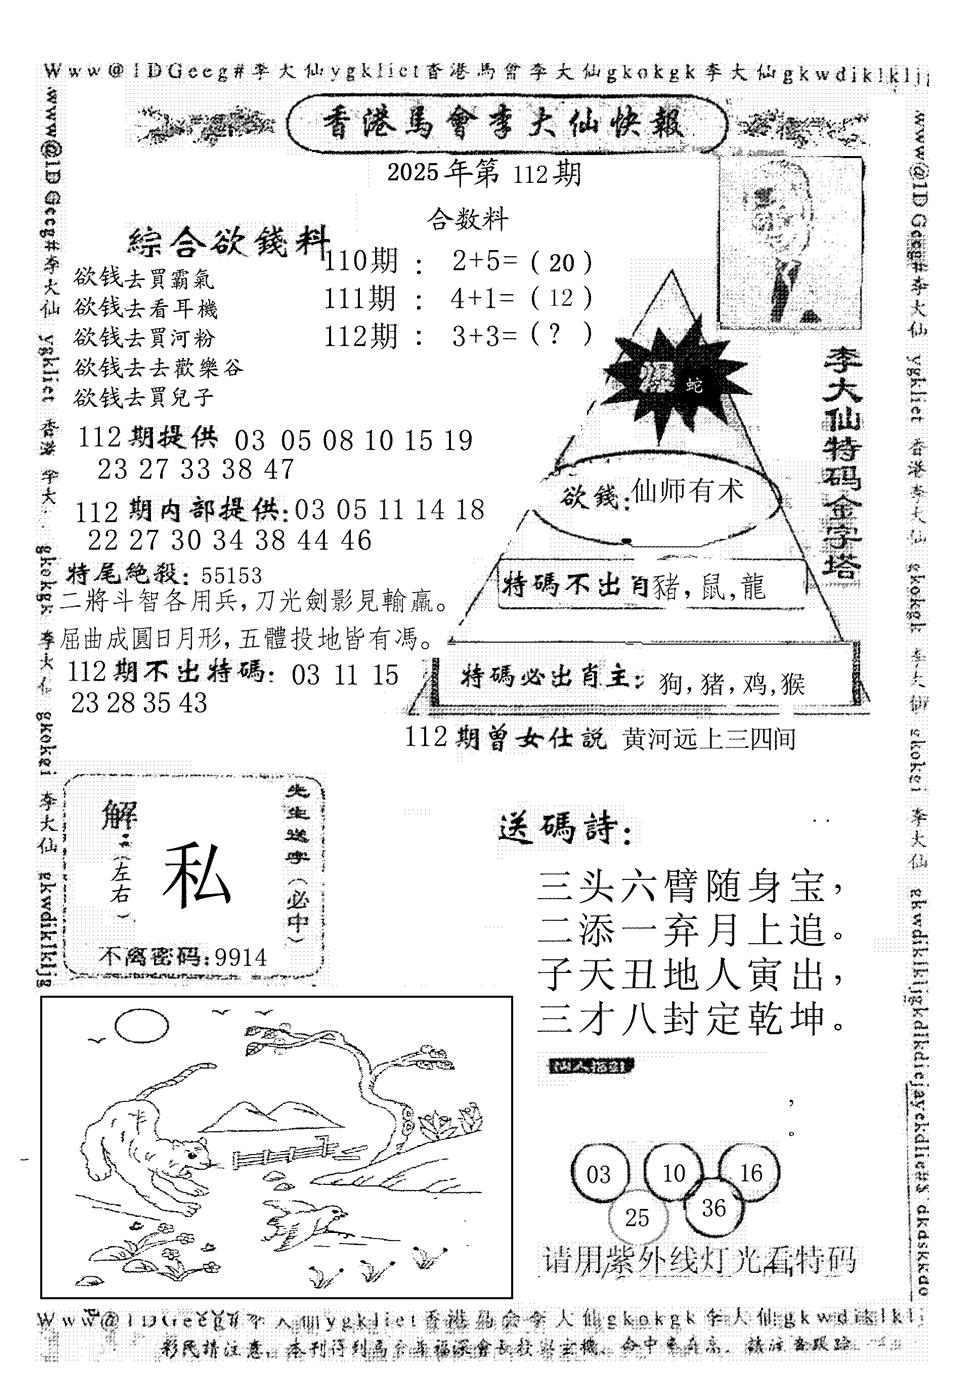 Www@1DGeeg#李大仙ygkliet香港馬會李大仙gkokgk李大仙gkwdiklkljg
香港馬會李大仙快報
2025年第112期
合数料
綜合欲錢料
110期： 2+5=（20）
111期： 4+1=（12）
112期： 3+3=（?）
欲钱去買霸氣
欲钱去看耳機
欲钱去買河粉
欲钱去去歡樂谷
欲钱去買兒子
112期提供 03 05 08 10 15 19
23 27 33 38 47
112期内部提供:03 05 11 14 18
22 27 30 34 38 44 46
特尾絶殺: 55153
二將斗智各用兵，刀光劍影見輸贏。
屈曲成圓日月形，五體投地皆有馮。
112期不出特碼: 03 11 15
23 28 35 43
李大仙特码金字塔
爆 蛇
欲錢:仙师有术
特碼不出肖豬，鼠，龍
特碼必出肖主: 狗，猪，鸡，猴
112期曾女仕説 黄河远上三四间
先生送字（必中）
解:（左右）
私
不离密码:9914
送碼詩:
三头六臂随身宝，
二添一弃月上追。
子天丑地人寅出，
三才八封定乾坤。
，
。
03 10 16
25 36
请用紫外线灯光看特码
www@1DGeeg#李大仙 ygkliet 香港 李大 gkokgk 李大仙 gkokei 李大仙 gkwdiklkljg
www@1DGeeg#李大仙 ygkliet 香港李大仙 gkokgk 李大仙 gkokei 李大仙 gkwdiklkljgkdlkdiejayekdlie#$ dkdskkdo
Www@1DGeeg#李大仙ygkliet香港馬会李大仙gkokgk李大仙gkwdiklklj